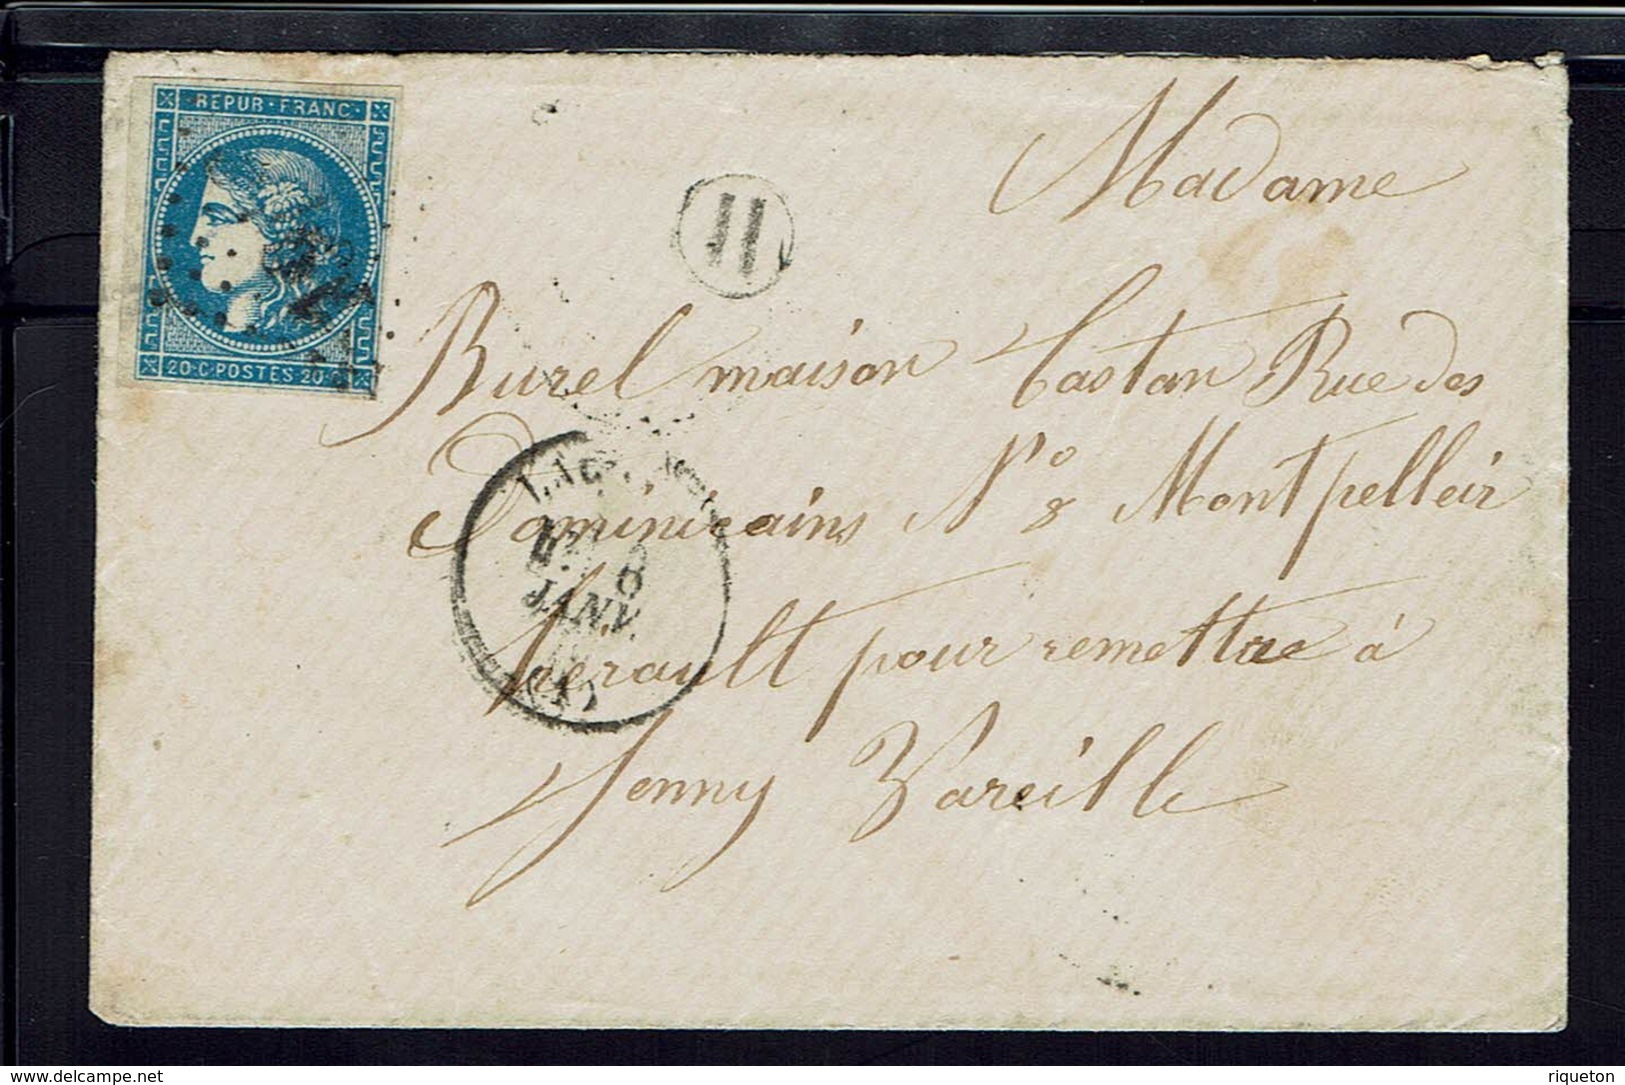 REPUB · FRANC ·
20·C·POSTES 20·C
Madame
Burel maison Castan Rue des
Dominicains N° 8 Montpelleir
herault pour remettre à
Jenny Vareille
8
JANV.
www.delcampe.net
riqueton